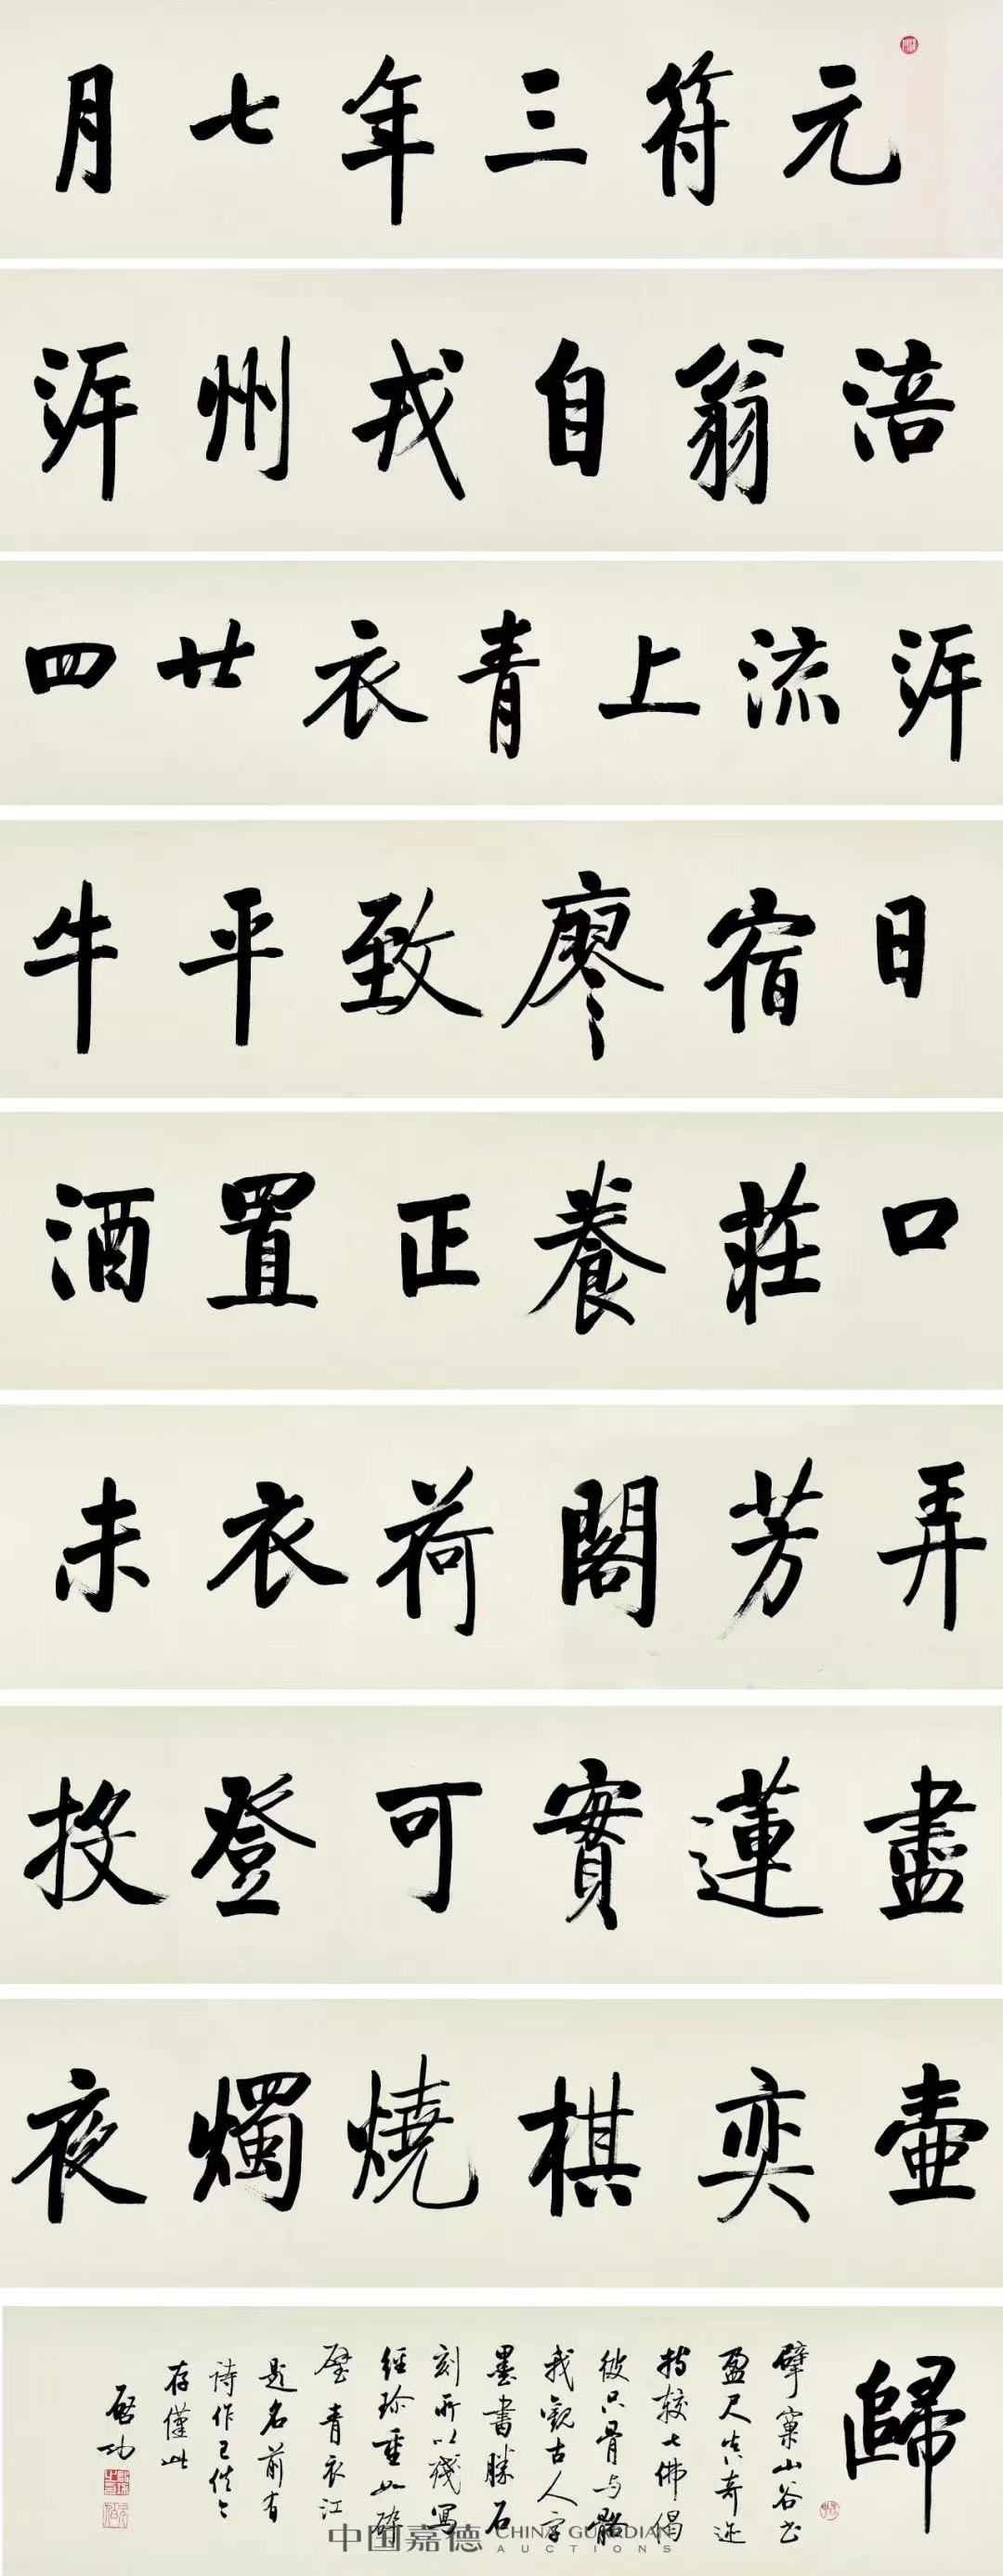 元符三年七月
涪翁自戎州泝
泝流上青衣廿四
日宿廖致平牛
口莊養正置酒
弄芳閣荷衣未
盡蓮實可登投
壺奕棋燒燭夜
歸
擘窠山谷書
盈尺真奇迹
持較七佛偈
彼只骨与骼
我觀古人字
墨書勝石
刻所以殘寫
經珍重如碎
璧 青衣江
題名前有
詩作已佚々
存僅此
啟功
中国嘉德 CHINA GUARDIAN
AUCTIONS